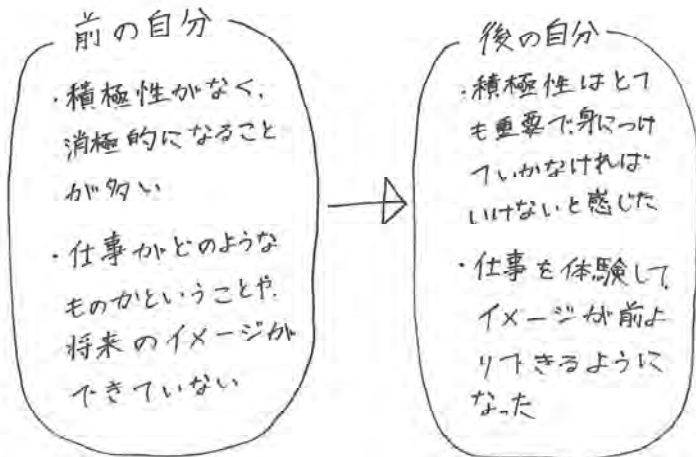 前の自分
・積極性がなく、
消極的になること
が多い
・仕事がどのような
ものかということや、
将来のイメージが
できていない
後の自分
・積極性はとて
も重要で、身につけ
ていかなければ
いけないと感じた
・仕事を体験して、
イメージが前よ
りできるように
なった